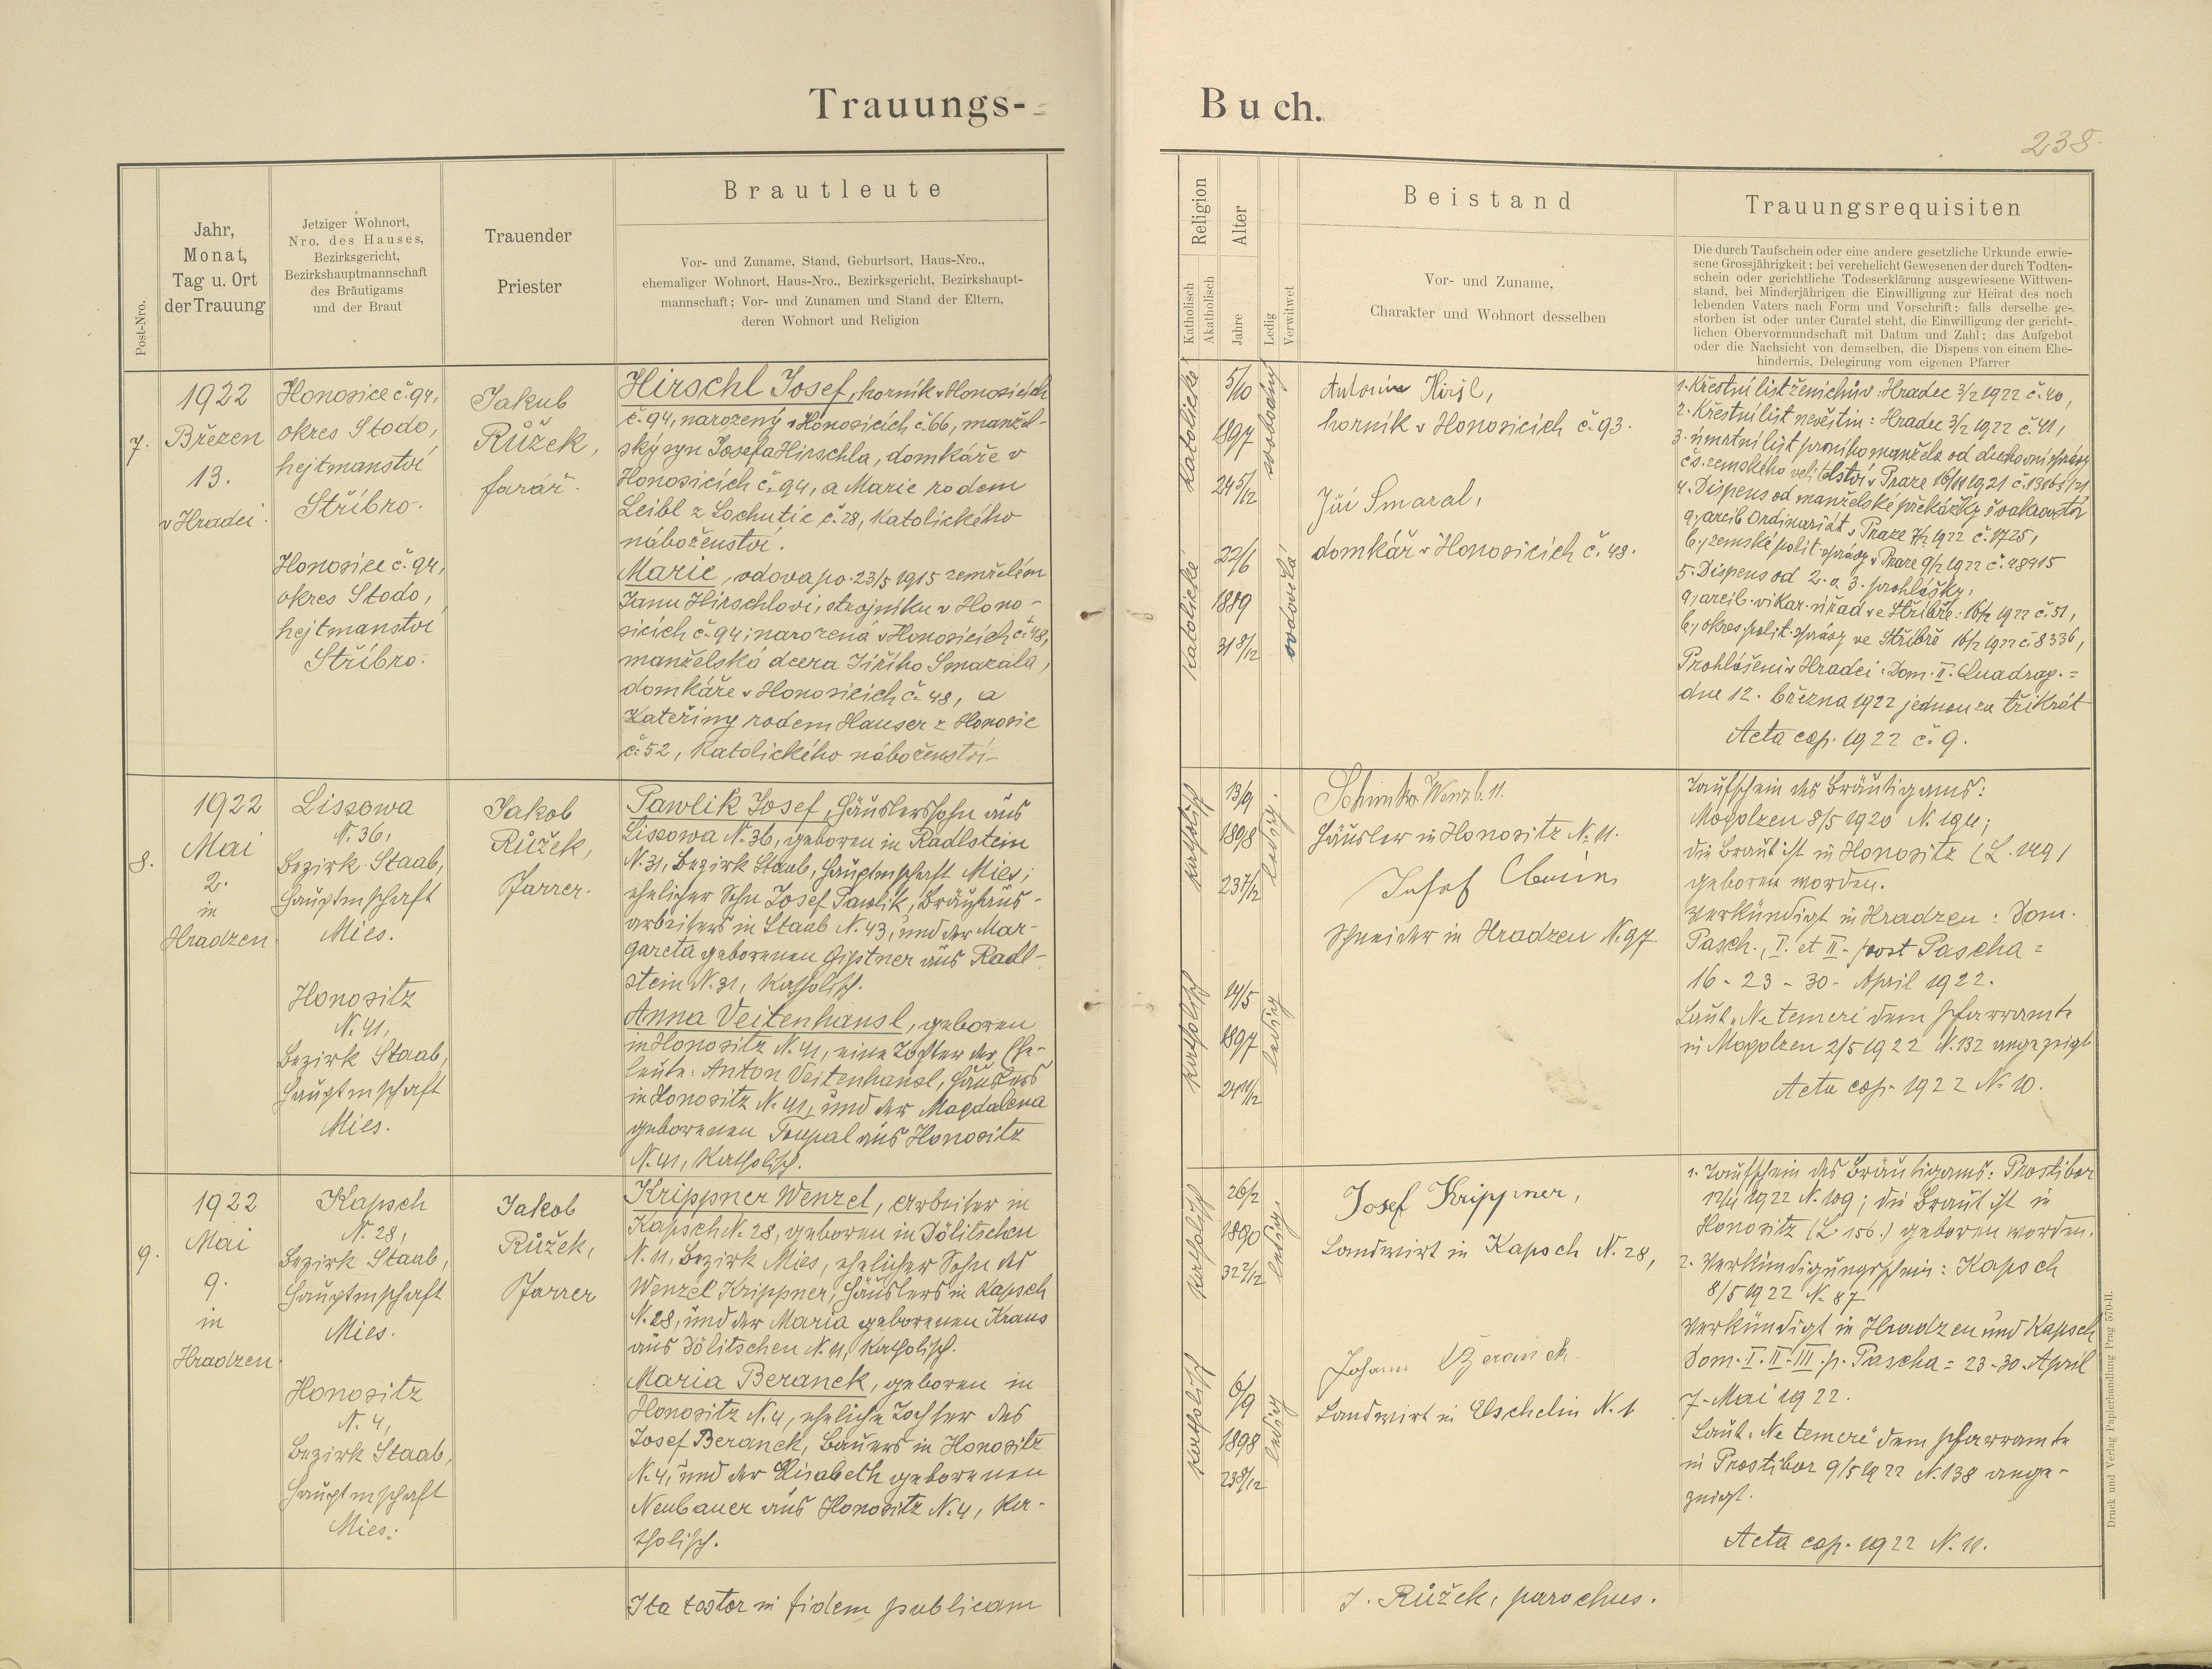 Trauungs-
Buch.
238.
Post-Nro.
Jahr,
Monat,
Tag u. Ort
der Trauung
Jetziger Wohnort,
Nro. des Hauses,
Bezirksgericht,
Bezirkshauptmannschaft
des Bräutigams
und der Braut
Trauender
Priester
Brautleute
Vor- und Zuname, Stand, Geburtsort, Haus-Nro.,
ehemaliger Wohnort, Haus-Nro., Bezirksgericht, Bezirkshaupt-
mannschaft; Vor- und Zunamen und Stand der Eltern,
deren Wohnort und Religion
Religion
Katholisch
Akatholisch
Alter
Jahre
Ledig
Verwitwet
Beistand
Vor- und Zuname,
Charakter und Wohnort desselben
Trauungsrequisiten
Die durch Taufschein oder eine andere gesetzliche Urkunde erwie-
sene Grossjährigkeit; bei verehelicht Gewesenen der durch Todten-
schein oder gerichtliche Todeserklärung ausgewiesene Wittwen-
stand, bei Minderjährigen die Einwilligung zur Heirat des noch
lebenden Vaters nach Form und Vorschrift; falls derselbe ge-
storben ist oder unter Curatel steht, die Einwilligung der gericht-
lichen Obervormundschaft mit Datum und Zahl; das Aufgebot
oder die Nachsicht von demselben, die Dispens von einem Ehe-
hindernis, Delegirung vom eigenen Pfarrer
7.
1922
Březen
13.
v Hradci.
Honosice č. 94,
okres Stodo,
hejtmanství
Stříbro.
Honosice č. 94,
okres Stodo,
hejtmanství
Stříbro.
Jakub
Růžek,
farář.
Hirschl Josef, horník v Honosicích
č. 94, narozený v Honosicích č. 66, manžel-
ský syn Josefa Hirschla, domkáře v
Honosicích č. 94, a Marie rodem
Leibl z Lochutic č. 28, katolického
náboženství.
Marie, vdova po 23/5 1915 zemřelém
Janu Hirschlovi, strojníku v Hono-
sicích č. 94; narozená v Honosicích č. 48,
manželská dcera Jiřího Smazala,
domkáře v Honosicích č. 48, a
Kateřiny rodem Hauser z Honosic
č. 52, katolického náboženství.
katolické
5/10
1897
24 5/12
svobodný
katolické
22/6
1889
31 8/12
ovdovělá
Antonín
horník v Honosicích č. 93.
Jiří Smazal,
domkář v Honosicích č. 48.
1. Křestní list ženichův: Hradec 3/2 1922 č. 40,
2. Křestní list nevěstin: Hradec 3/2 1922 č. 41,
3. úmrtní list prvního manžela od duchovní správy
čs. zemského velitelství v Praze 16/11 1921 č. 13163/21
4. Dispens od manželské překážky švakrovství
a, arcib. Ordinariát v Praze 7/2 1922 č. 1725,
b, zemské polit. správy v Praze 9/2 1922 č. 48915
5. Dispens od 2. a 3. prohlášky,
a, arcib. vikar. úřad ve Stříbře: 16/2 1922 č. 51,
b, okres. polit. správy ve Stříbře 16/2 1922 č. 8336,
Prohlášeni v Hradci: Dom. II. Quadrag. =
dne 12. března 1922 jednou za třikrát
Acta cop. 1922 č. 9.
8.
1922
Mai
2.
in
Hradzen.
Lissowa
N. 36,
Bezirk Staab,
Hauptmschaft
Mies.
Honositz
N. 41,
Bezirk Staab,
Hauptmschaft
Mies.
Jakob
Růžek,
Pfarrer.
Pawlik Josef, Häuslerssohn aus
Lissowa N. 36, geboren in Radlstein
N. 31, Bezirk Staab, Hauptmschaft Mies;
ehelicher Sohn Josef Pawlik, Bräuhaus-
arbeiters in Staab N. 43, und der Mar-
gareta geborenen Gistner aus Radl-
stein N. 31, katholisch.
Anna Veitenhansl, geboren
in Honositz N. 41, eine Tochter der Ehe-
leute: Anton Veitenhansl, Häuslers
in Honositz N. 41, und der Magdalena
geborenen Toupal aus Honositz
N. 41, katholisch.
katholisch
13/9
1898
23 7/12
ledig.
katholisch
14/5
1897
24 11/12
ledig
Wenzl. 11.
Häusler in Honositz N. 11.
Josef
Schneider in Hradzen N. 97.
Taufschein des Bräutigams:
Mogolzen 8/5 1920 N. 194;
die Braut ist in Honositz (L. 149)
geboren worden.
Verkündigt in Hradzen: Dom.
Pasch., I. et II. post Pascha =
16 - 23 - 30. April 1922.
Laut „Ne temere" dem Pfarramte
in Mogolzen 2/5 1922 N. 132 angezeigt
Acta cop. 1922 N. 10.
9.
1922
Mai
9.
in
Hradzen.
Kapsch
N. 28,
Bezirk Staab,
Hauptmschaft
Mies.
Honositz
N. 4,
Bezirk Staab,
Hauptmschaft
Mies.
Jakob
Růžek,
Pfarrer
Krippner Wenzel, Arbeiter in
Kapsch N. 28, geboren in Dölitschen
N. 11, Bezirk Mies, ehelicher Sohn des
Wenzel Krippner, Häuslers in Kapsch
N. 28, und der Maria geborenen Kraus
aus Dölitschen N. 11, katholisch.
Maria Beranek, geboren in
Honositz N. 4, eheliche Tochter des
Josef Beranek, Bauers in Honositz
N. 4, und der Elisabeth geborenen
Neubauer aus Honositz N. 4, ka-
tholisch.
katholisch
26/2
1890
32 2/12
ledig
katholisch
6/9
1898
23 8/12
ledig
Josef Krippner,
Landwirt in Kapsch N. 28,
Johann Beranek
Landwirt in Elschelin N. 1
1. Taufschein des Bräutigams: Prostibor
12/4 1922 N. 109; die Braut ist in
Honositz (L. 156.) geboren worden.
2. Verkündigungsschein: Kapsch
8/5 1922 N. 87
Verkündigt in Hradzen und Kapsch
Dom. I. II. III. p. Pascha = 23 - 30 April
7. Mai 1922.
Laut „Ne temere" dem Pfarramte
in Prostibor 9/5 1922 N. 138 ange-
zeigt.
Acta cop. 1922 N. 11.
Ita testor in fidem publicam
J. Růžek, parochus.
Druck und Verlag Papierhandlung Prag 570-II.